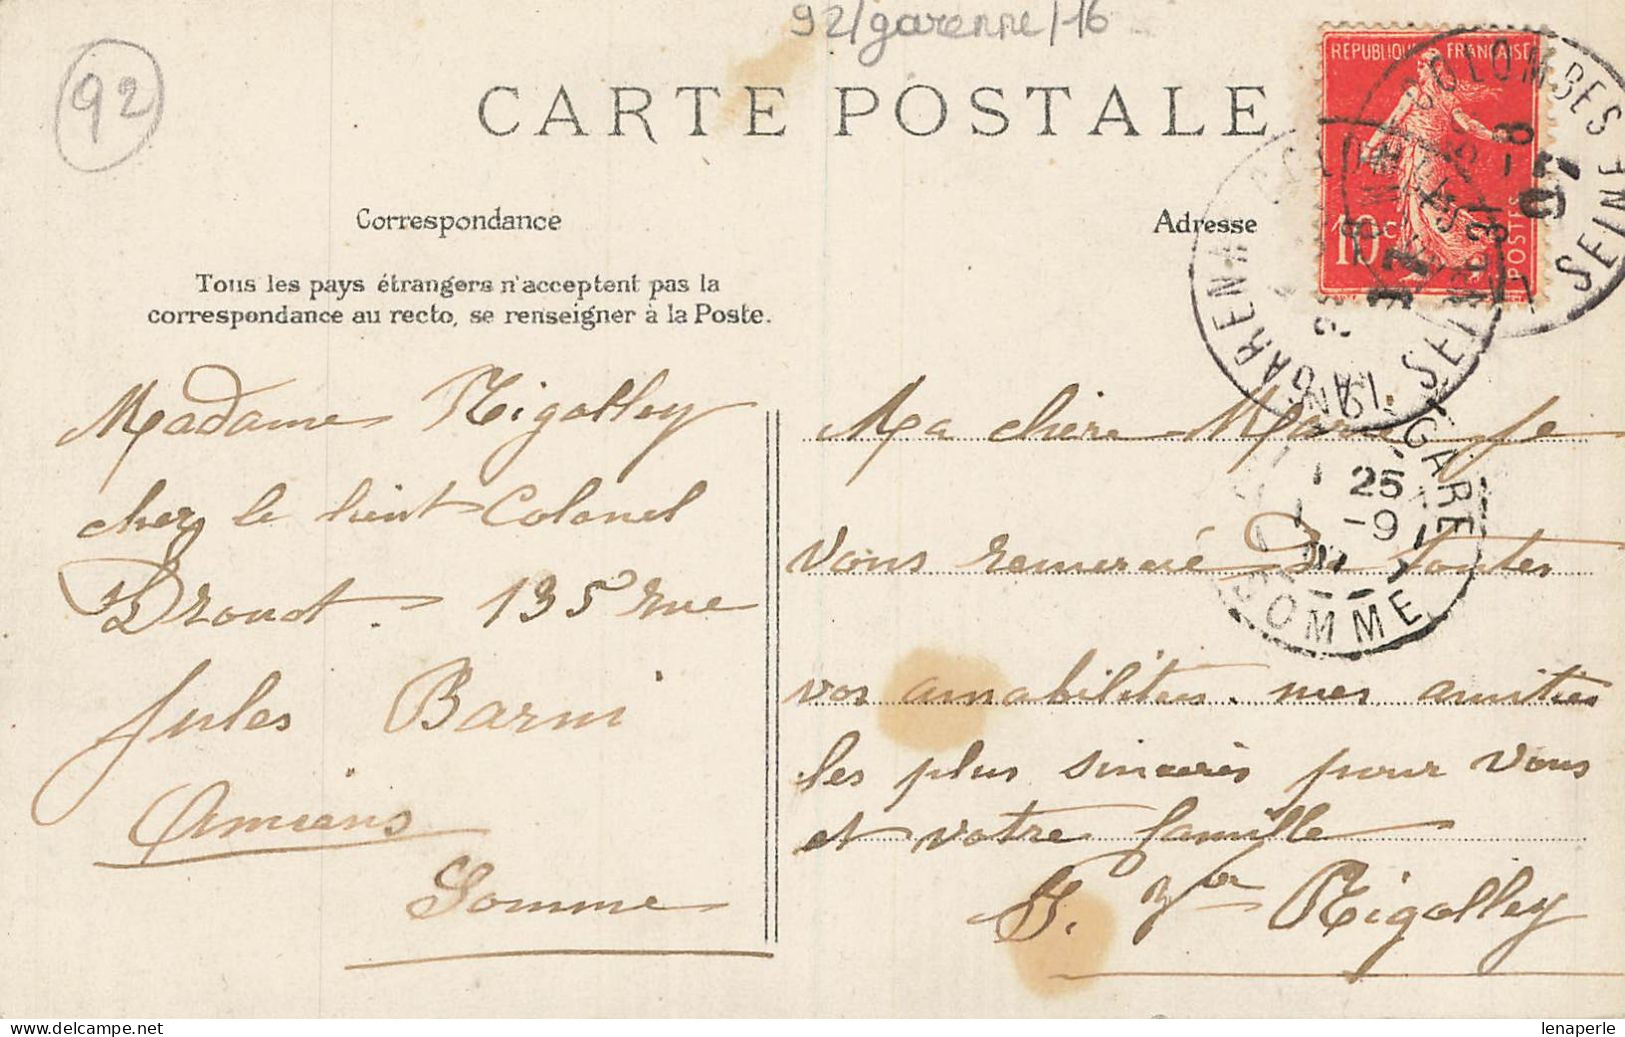 92/garenne/16
92
CARTE POSTALE
REPUBLIQUE FRANÇAISE
10c
POSTES
COLOMBES
SEINE
LA GARENNE
SEINE
Correspondance
Adresse
Tous les pays étrangers n'acceptent pas la
correspondance au recto, se renseigner à la Poste.
Madame Rigolley
chez le lieut Colonel
Drouot. 135 rue
Jules Barni
Amiens
Somme
GARE
25
-9
SOMME
Ma chère Marie je
vous remercie de toutes
vos amabilitees. mes amities
les plus sincères pour vous
et votre famille
Vor Rigolley
lenaperle